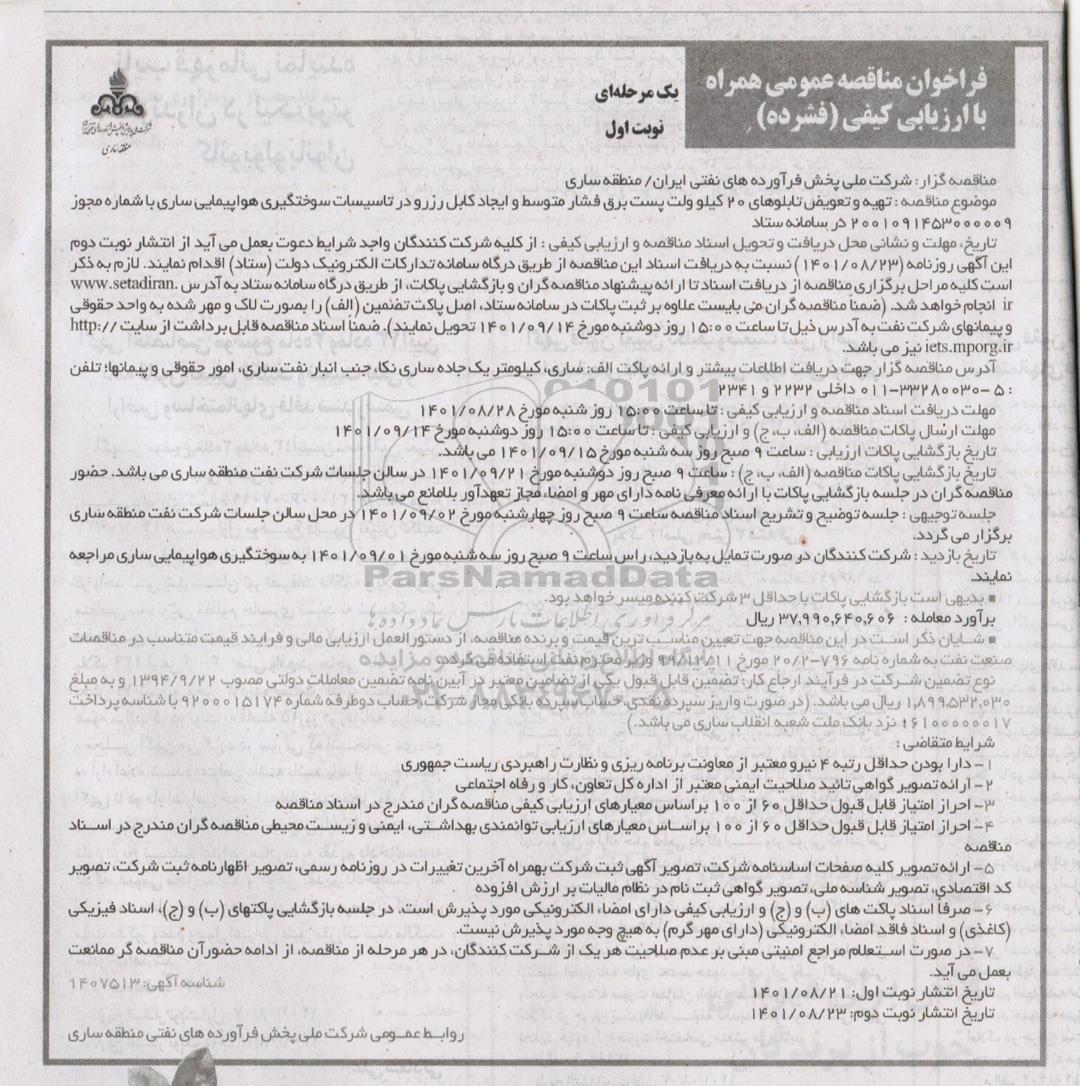 فراخوان مناقصه عمومی همراه
با ارزیابی کیفی (فشرده)
یک مرحله‌ای
نوبت اول
منطقه ساری
مناقصه گزار : شرکت ملی پخش فرآورده های نفتی ایران/ منطقه ساری
موضوع مناقصه : تهیه و تعویض تابلوهای ۲۰ کیلو ولت پست برق فشار متوسط و ایجاد کابل رزرو در تاسیسات سوختگیری هواپیمایی ساری با شماره مجوز
۲۰۰۱۰۹۱۴۵۳۰۰۰۰۰۹ در سامانه ستاد
تاریخ، مهلت و نشانی محل دریافت و تحویل اسناد مناقصه و ارزیابی کیفی : از کلیه شرکت کنندگان واجد شرایط دعوت بعمل می آید از انتشار نوبت دوم
این آگهی روزنامه (۱۴۰۱/۰۸/۲۳) نسبت به دریافت اسناد این مناقصه از طریق درگاه سامانه تدارکات الکترونیک دولت (ستاد) اقدام نمایند. لازم به ذکر
است کلیه مراحل برگزاری مناقصه از دریافت اسناد تا ارائه پیشنهاد مناقصه گران و بازگشایی پاکات، از طریق درگاه سامانه ستاد به آدرس www.setadiran.
ir انجام خواهد شد. (ضمناً مناقصه گران می بایست علاوه بر ثبت پاکات در سامانه ستاد، اصل پاکت تضمین (الف) را بصورت لاک و مهر شده به واحد حقوقی
و پیمانهای شرکت نفت به آدرس ذیل تا ساعت ۱۵:۰۰ روز دوشنبه مورخ ۱۴۰۱/۰۹/۱۴ تحویل نمایند). ضمناً اسناد مناقصه قابل برداشت از سایت http://
iets.mporg.ir نیز می باشد.
آدرس مناقصه گزار جهت دریافت اطلاعات بیشتر و ارائه پاکت الف: ساری، کیلومتر یک جاده ساری نکا، جنب انبار نفت ساری، امور حقوقی و پیمانها؛ تلفن
: ۵-۳۳۲۸۰۰۳۰-۰۱۱ داخلی ۲۲۳۲ و ۲۳۴۱
مهلت دریافت اسناد مناقصه و ارزیابی کیفی : تا ساعت ۱۵:۰۰ روز شنبه مورخ ۱۴۰۱/۰۸/۲۸
مهلت ارسال پاکات مناقصه (الف، ب، ج) و ارزیابی کیفی : تا ساعت ۱۵:۰۰ روز دوشنبه مورخ ۱۴۰۱/۰۹/۱۴
تاریخ بازگشایی پاکات ارزیابی : ساعت ۹ صبح روز سه شنبه مورخ ۱۴۰۱/۰۹/۱۵ می باشد.
تاریخ بازگشایی پاکات مناقصه (الف، ب، ج) : ساعت ۹ صبح روز دوشنبه مورخ ۱۴۰۱/۰۹/۲۱ در سالن جلسات شرکت نفت منطقه ساری می باشد. حضور
مناقصه گران در جلسه بازگشایی پاکات با ارائه معرفی نامه دارای مهر و امضاء مجاز تعهدآور بلامانع می باشد.
جلسه توجیهی : جلسه توضیح و تشریح اسناد مناقصه ساعت ۹ صبح روز چهارشنبه مورخ ۱۴۰۱/۰۹/۰۲ در محل سالن جلسات شرکت نفت منطقه ساری
برگزار می گردد.
تاریخ بازدید : شرکت کنندگان در صورت تمایل به بازدید، راس ساعت ۹ صبح روز سه شنبه مورخ ۱۴۰۱/۰۹/۰۱ به سوختگیری هواپیمایی ساری مراجعه
نمایند.
ParsNamadData
■ بدیهی است بازگشایی پاکات با حداقل ۳ شرکت کننده میسر خواهد بود.
برآورد معامله : ۳۷,۹۹۰,۶۴۰,۶۰۶ ریال
■ شایان ذکر است در این مناقصه جهت تعیین مناسب ترین قیمت و برنده مناقصه، از دستورالعمل ارزیابی مالی و فرایند قیمت متناسب در مناقصات
صنعت نفت به شماره نامه ۷۹۶-۲۰/۲ مورخ ۹۹/۱۲/۱۱ وزیر محترم نفت استفاده می گردد.
نوع تضمین شرکت در فرآیند ارجاع کار: تضمین قابل قبول یکی از تضامین معتبر در آیین نامه تضمین معاملات دولتی مصوب ۱۳۹۴/۹/۲۲ و به مبلغ
۱,۸۹۹,۵۳۲,۰۳۰ ریال می باشد. (در صورت واریز سپرده نقدی، حساب سپرده بانکی مجاز شرکت، حساب دوطرفه شماره ۹۲۰۰۰۱۵۱۷۴ با شناسه پرداخت
۱۶۱۰۰۰۰۰۰۱۷ نزد بانک ملت شعبه انقلاب ساری می باشد.)
شرایط متقاضی :
۱- دارا بودن حداقل رتبه ۴ نیرو معتبر از معاونت برنامه ریزی و نظارت راهبردی ریاست جمهوری
۲- ارائه تصویر گواهی تائید صلاحیت ایمنی معتبر از اداره کل تعاون، کار و رفاه اجتماعی
۳- احراز امتیاز قابل قبول حداقل ۶۰ از ۱۰۰ براساس معیارهای ارزیابی کیفی مناقصه گران مندرج در اسناد مناقصه
۴- احراز امتیاز قابل قبول حداقل ۶۰ از ۱۰۰ براساس معیارهای ارزیابی توانمندی بهداشتی، ایمنی و زیست محیطی مناقصه گران مندرج در اسناد
مناقصه
۵- ارائه تصویر کلیه صفحات اساسنامه شرکت، تصویر آگهی ثبت شرکت بهمراه آخرین تغییرات در روزنامه رسمی، تصویر اظهارنامه ثبت شرکت، تصویر
کد اقتصادی، تصویر شناسه ملی، تصویر گواهی ثبت نام در نظام مالیات بر ارزش افزوده
۶- صرفا اسناد پاکت های (ب) و (ج) و ارزیابی کیفی دارای امضاء الکترونیکی مورد پذیرش است. در جلسه بازگشایی پاکتهای (ب) و (ج)، اسناد فیزیکی
(کاغذی) و اسناد فاقد امضاء الکترونیکی (دارای مهر گرم) به هیچ وجه مورد پذیرش نیست.
۷- در صورت استعلام مراجع امنیتی مبنی بر عدم صلاحیت هر یک از شرکت کنندگان، در هر مرحله از مناقصه، از ادامه حضور آن مناقصه گر ممانعت
بعمل می آید.
تاریخ انتشار نوبت اول: ۱۴۰۱/۰۸/۲۱
شناسه آگهی: ۱۴۰۷۵۱۳
تاریخ انتشار نوبت دوم: ۱۴۰۱/۰۸/۲۳
روابط عمومی شرکت ملی پخش فرآورده های نفتی منطقه ساری